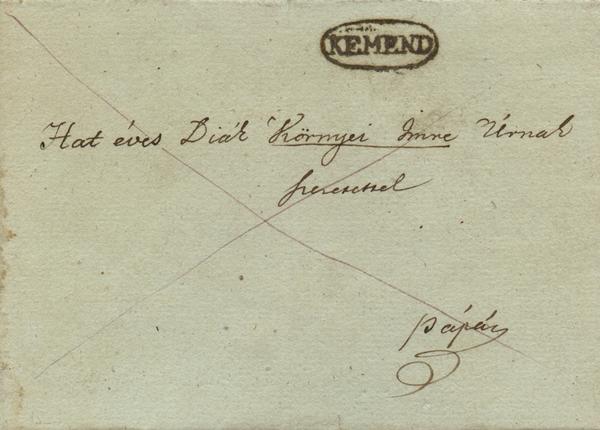 KEMEND
Hat éves Diák Környei Imre Úrnak
szeretettel
Pápán